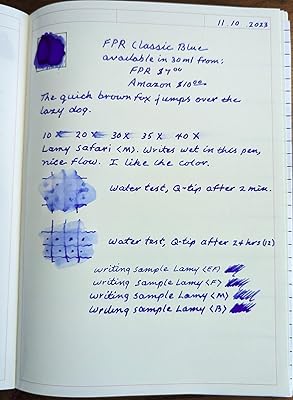 11.10.2023
FPR Classic Blue
available in 30ml from:
FPR $7.00
Amazon $10.00
The quick brown fox jumps over the
lazy dog.
10X 20X 30X 35X 40X
Lamy Safari (M). Writes wet in this pen,
nice flow. I like the color.
Water test, Q-tip after 2 min.
Water test, Q-tip after 24 hrs (12)
Writing sample Lamy (EF)
Writing sample Lamy (F)
Writing sample Lamy (M)
Writing sample Lamy (B)